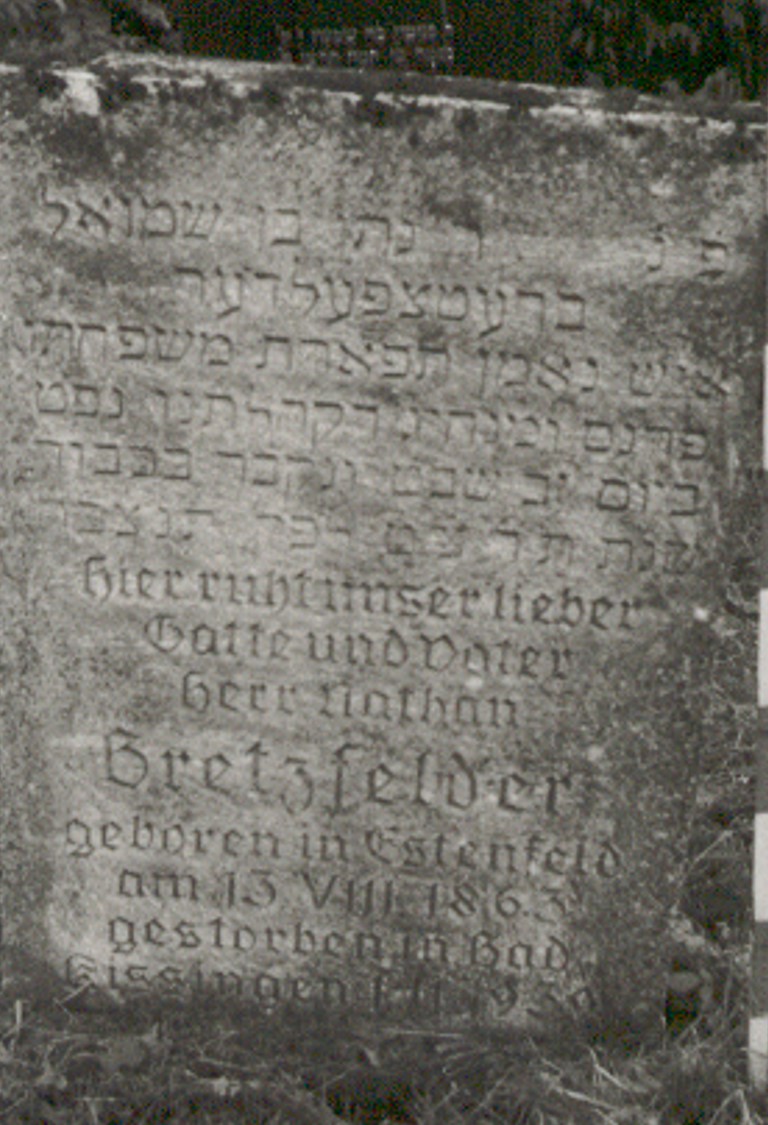 פ נ ר נתן בן שמואל
ברעטצפעלדער
איש נאמן תפארת משפחתו
פרנס ומנהיג דקהלתינו נפט
ביום יב שבט ונקבר בכבוד
שנת תרצט לפק תנצבה
Hier ruht unser lieber
Gatte und Vater
Herr Nathan
Bretzfelder
geboren in Estenfeld
am 13 VIII 1863
gestorben in Bad
Kissingen 1 II 1939